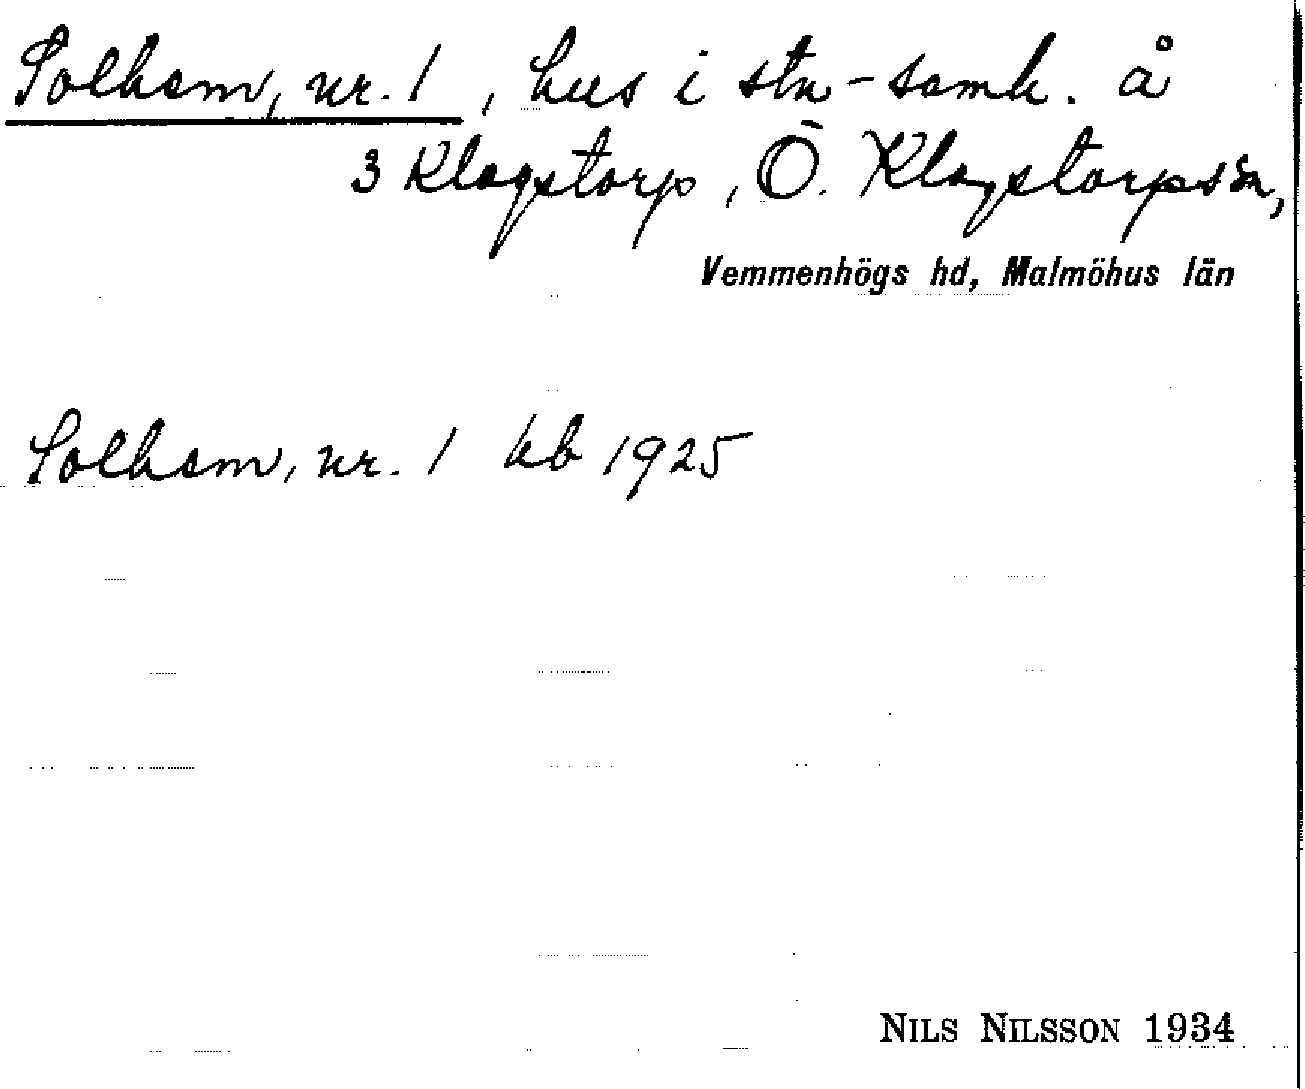 Solhem, nr. 1, hus i stn-samh. å
3 Klagstorp, Ö. Klagstorps sn,
Vemmenhögs hd, Malmöhus län
Solhem, nr. 1 kb 1925
NILS NILSSON 1934